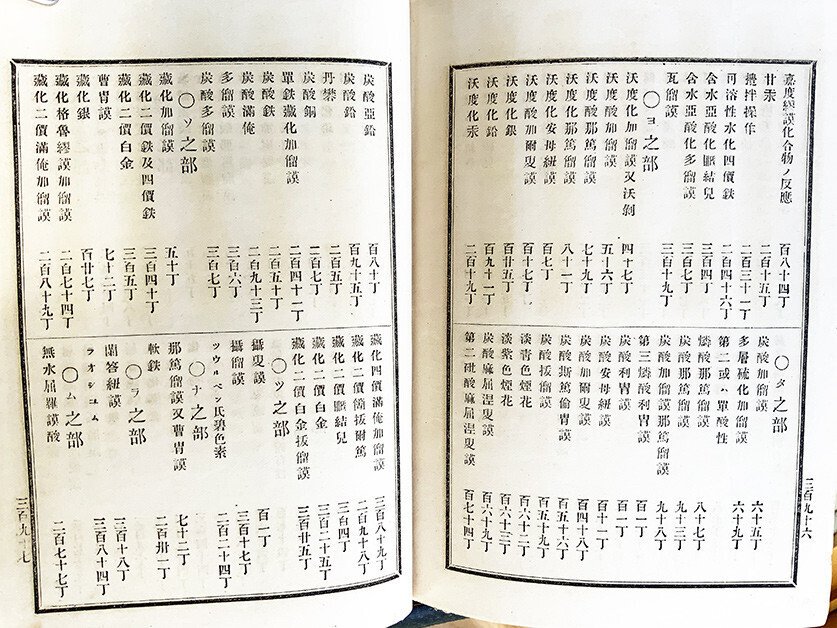 嘉度繆謨化合物ノ反應 百八十四丁
甘汞 二百十五丁
攪拌操作 二百三十一丁
可溶性水化四價鉄 二百四十六丁
含水亞酸化結兒 三百四丁
含水亞酸化多鎦謨 三百七丁
瓦鎦謨 三百十九丁
〇ヨ之部
沃度化加鎦謨又沃剝 四十七丁
沃度酸加鎦謨 五十六丁
沃度酸那篤鎦謨 七十九丁
沃度化那篤鎦謨 八十一丁
沃度化安母紐謨 百七丁
沃度酸加爾叟謨 百十七丁
沃度化銀 百廿五丁
沃度化鉛 百九十一丁
沃度化汞 二百十九丁
〇タ之部
炭酸加鎦謨 六十五丁
多層硫化加鎦謨 六十九丁
第二或ハ單酸性
燐酸那篤鎦謨 八十七丁
炭酸那篤鎦謨 九十三丁
炭酸加鎦謨那篤鎦謨 九十八丁
第三燐酸利冑謨 百一丁
炭酸利冑謨 百一丁
炭酸安母紐謨 百十一丁
炭酸加爾叟謨 百四十八丁
炭酸斯篤倫冑謨 百五十六丁
炭酸拔鎦謨 百五十九丁
淡青色煙花 百六十二丁
淡紫色煙花 百六十三丁
炭酸麻屈涅叟謨 百六十九丁
第二砒酸麻屈涅叟謨 百七十四丁
三百九十六
炭酸亞鉛 百八十丁
炭酸鉛 百九十五丁
丹礬 二百五丁
炭酸銅 二百七丁
單鉄藏化加鎦謨 二百四十一丁
炭酸鉄 二百五十丁
炭酸滿俺 二百九十三丁
多鎦謨 三百六丁
炭酸多鎦謨 三百七丁
〇ソ之部
藏化加鎦謨 五十丁
藏化二價鉄及四價鉄 三百四十丁
藏化二價白金 三百五丁
曹冑謨 七十二丁
藏化銀 百廿七丁
藏化格魯繆謨加鎦謨 二百七十四丁
藏化二價滿俺加鎦謨 二百八十九丁
藏化四價滿俺加鎦謨 三百八十九丁
藏化二價箇拔爾篤 二百九十八丁
藏化二價結兒 三百四丁
藏化二價白金 三百二十五丁
藏化二價白金拔鎦謨 三百廿五丁
〇ツ之部
攝叟謨 百一丁
攝鎦謨 三百十七丁
ツウルベン氏碧色素 二百二十四丁
〇ナ之部
那篤鎦謨又曹冑謨 七十二丁
軟鉄 二百卅一丁
〇ラ之部
蘭答紐謨 三百十八丁
ラオシユム 三百八十四丁
〇ム之部
無水屈羅謨酸 二百七十七丁
三百九十七